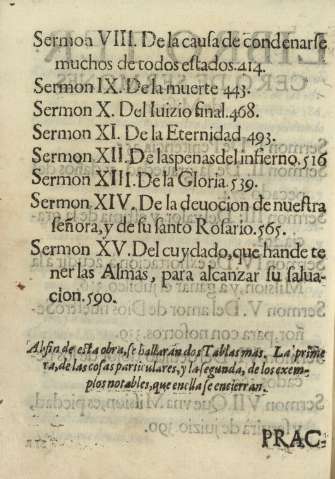 Sermon VIII. De la causa de condenarse
muchos de todos estados. 414.
Sermon IX. De la muerte 443.
Sermon X. Del Iuizio final. 468.
Sermon XI. De la Eternidad 493.
Sermon XII. De laspenas del infierno. 516
Sermon XIII. De la Gloria. 539.
Sermon XIV. De la deuocion de nuestra
señora, y de su santo Rosario. 565.
Sermon XV. Del cuydado, que hande te
ner las Almas, para alcanzar su salua-
cion. 590.
Al fin de esta obra, se hallarán dos Tablas mas. La prime
ra, de las cosas particulares, y la segunda, de los exem-
plos notables, que en ella se encierran.
PRAC-